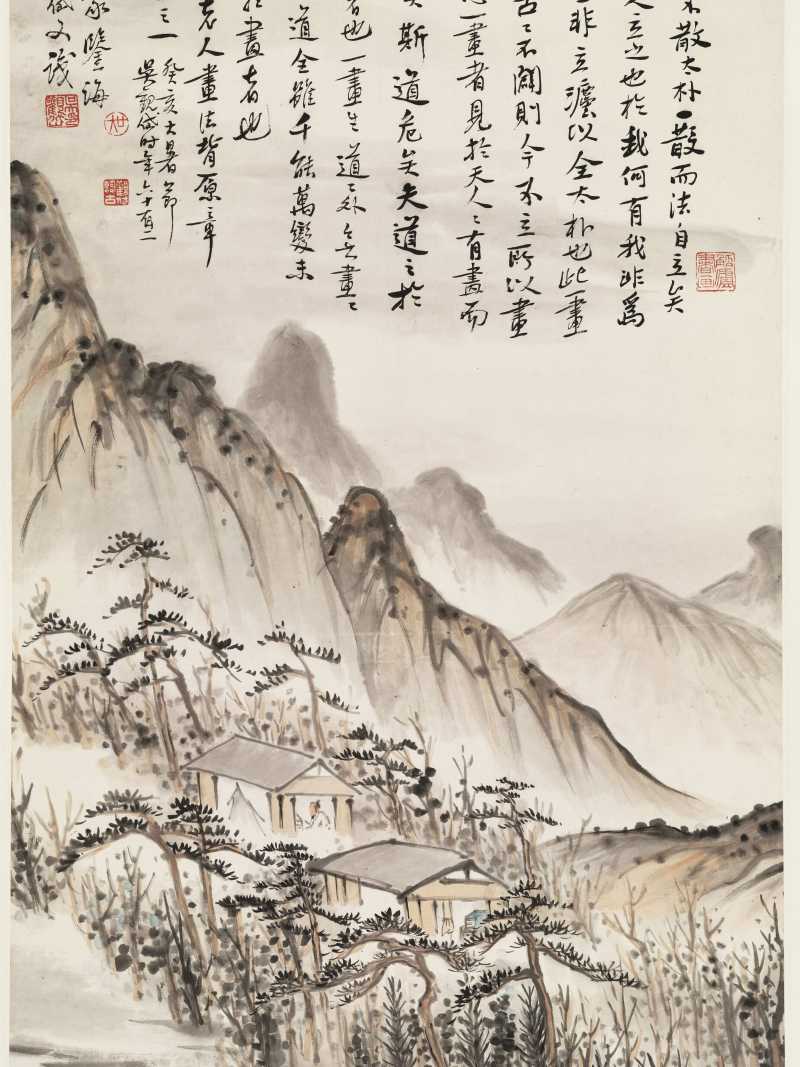 不散太朴一散而法自立矣
立之也於我何有我非爲
非立灋以全太朴也此一畫
古〻不闢則今不立所以畫
一畫者見於天人〻有畫而
斯道危矣夫道之於
者也一畫生道〻外無畫〻
道全雖千能萬變未
於畫者也
老人畫法背原章
之一 癸亥大暑節
吳觀岱時年六十有二
家鑒海
岱又識